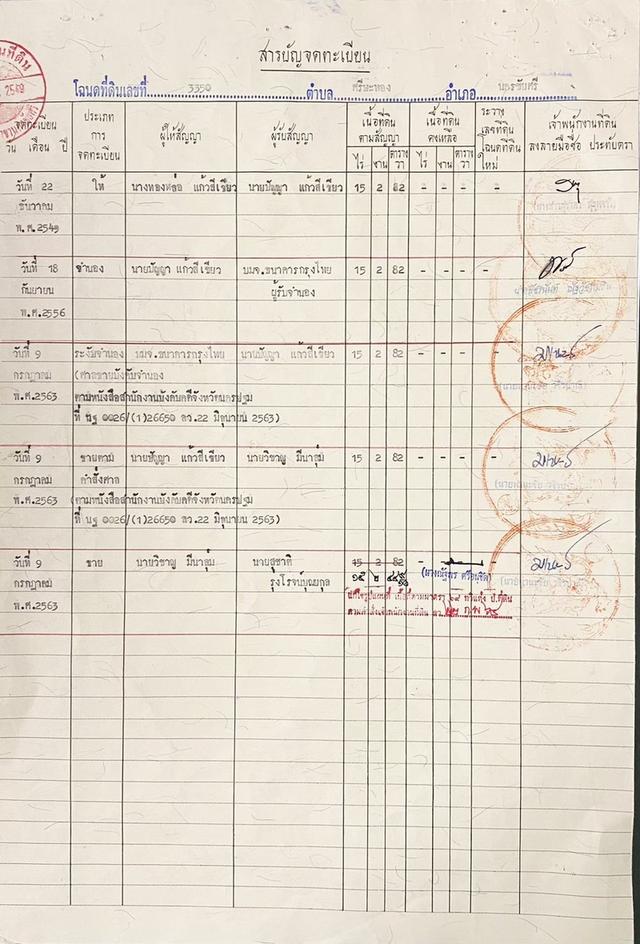 สารบัญจดทะเบียน
โฉนดที่ดินเลขที่ 3350 ตำบล ศรีมหาโพธิ์ อำเภอ นครชัยศรี
จดทะเบียน วัน เดือน ปี
ประเภทการจดทะเบียน
ผู้ให้สัญญา
ผู้รับสัญญา
เนื้อที่ดินตามสัญญา ไร่ งาน ตารางวา
เนื้อที่ดินคงเหลือ ไร่ งาน ตารางวา
ระวาง เลขที่ดิน โฉนดที่ดินใหม่
เจ้าพนักงานที่ดิน ลงลายมือชื่อ ประทับตรา
วันที่ 22 ให้ นางทองหล่อ แก้วสีเขียว นายปัญญา แก้วสีเขียว 15 2 82 - - - -
ธันวาคม
พ.ศ.2549
วันที่ 18 จำนอง นายปัญญา แก้วสีเขียว บมจ.ธนาคารกรุงไทย 15 2 82 - - - -
กันยายน ผู้รับจำนอง
พ.ศ.2556
วันที่ 9 ระงับจำนอง บมจ.ธนาคารกรุงไทย นายปัญญา แก้วสีเขียว 15 2 82 - - - -
กรกฎาคม (ศาลขายบังคับจำนอง
พ.ศ.2563 ตามหนังสือสำนักงานบังคับคดีจังหวัดนครปฐม
ที่ นฐ 0026/(1)26650 ลว.22 มิถุนายน 2563)
วันที่ 9 ขายตาม นายปัญญา แก้วสีเขียว นายวิชาญ มีนาลุ่ม 15 2 82 - - - -
กรกฎาคม คำสั่งศาล
พ.ศ.2563 (ตามหนังสือสำนักงานบังคับคดีจังหวัดนครปฐม
ที่ นฐ 0026/(1)26650 ลว.22 มิถุนายน 2563)
วันที่ 9 ขาย นายวิชาญ มีนาลุ่ม นายสุชาติ 15 2 82
กรกฎาคม รุ่งโรจน์บุญยกุล ๑๕ ๒
พ.ศ.2563 แก้ไขรูปแผนที่ เนื้อที่ตามมาตรา ๖๙ ทวิแห่ง ป.ที่ดิน
ตามคำสั่งเจ้าพนักงานที่ดิน ลว.